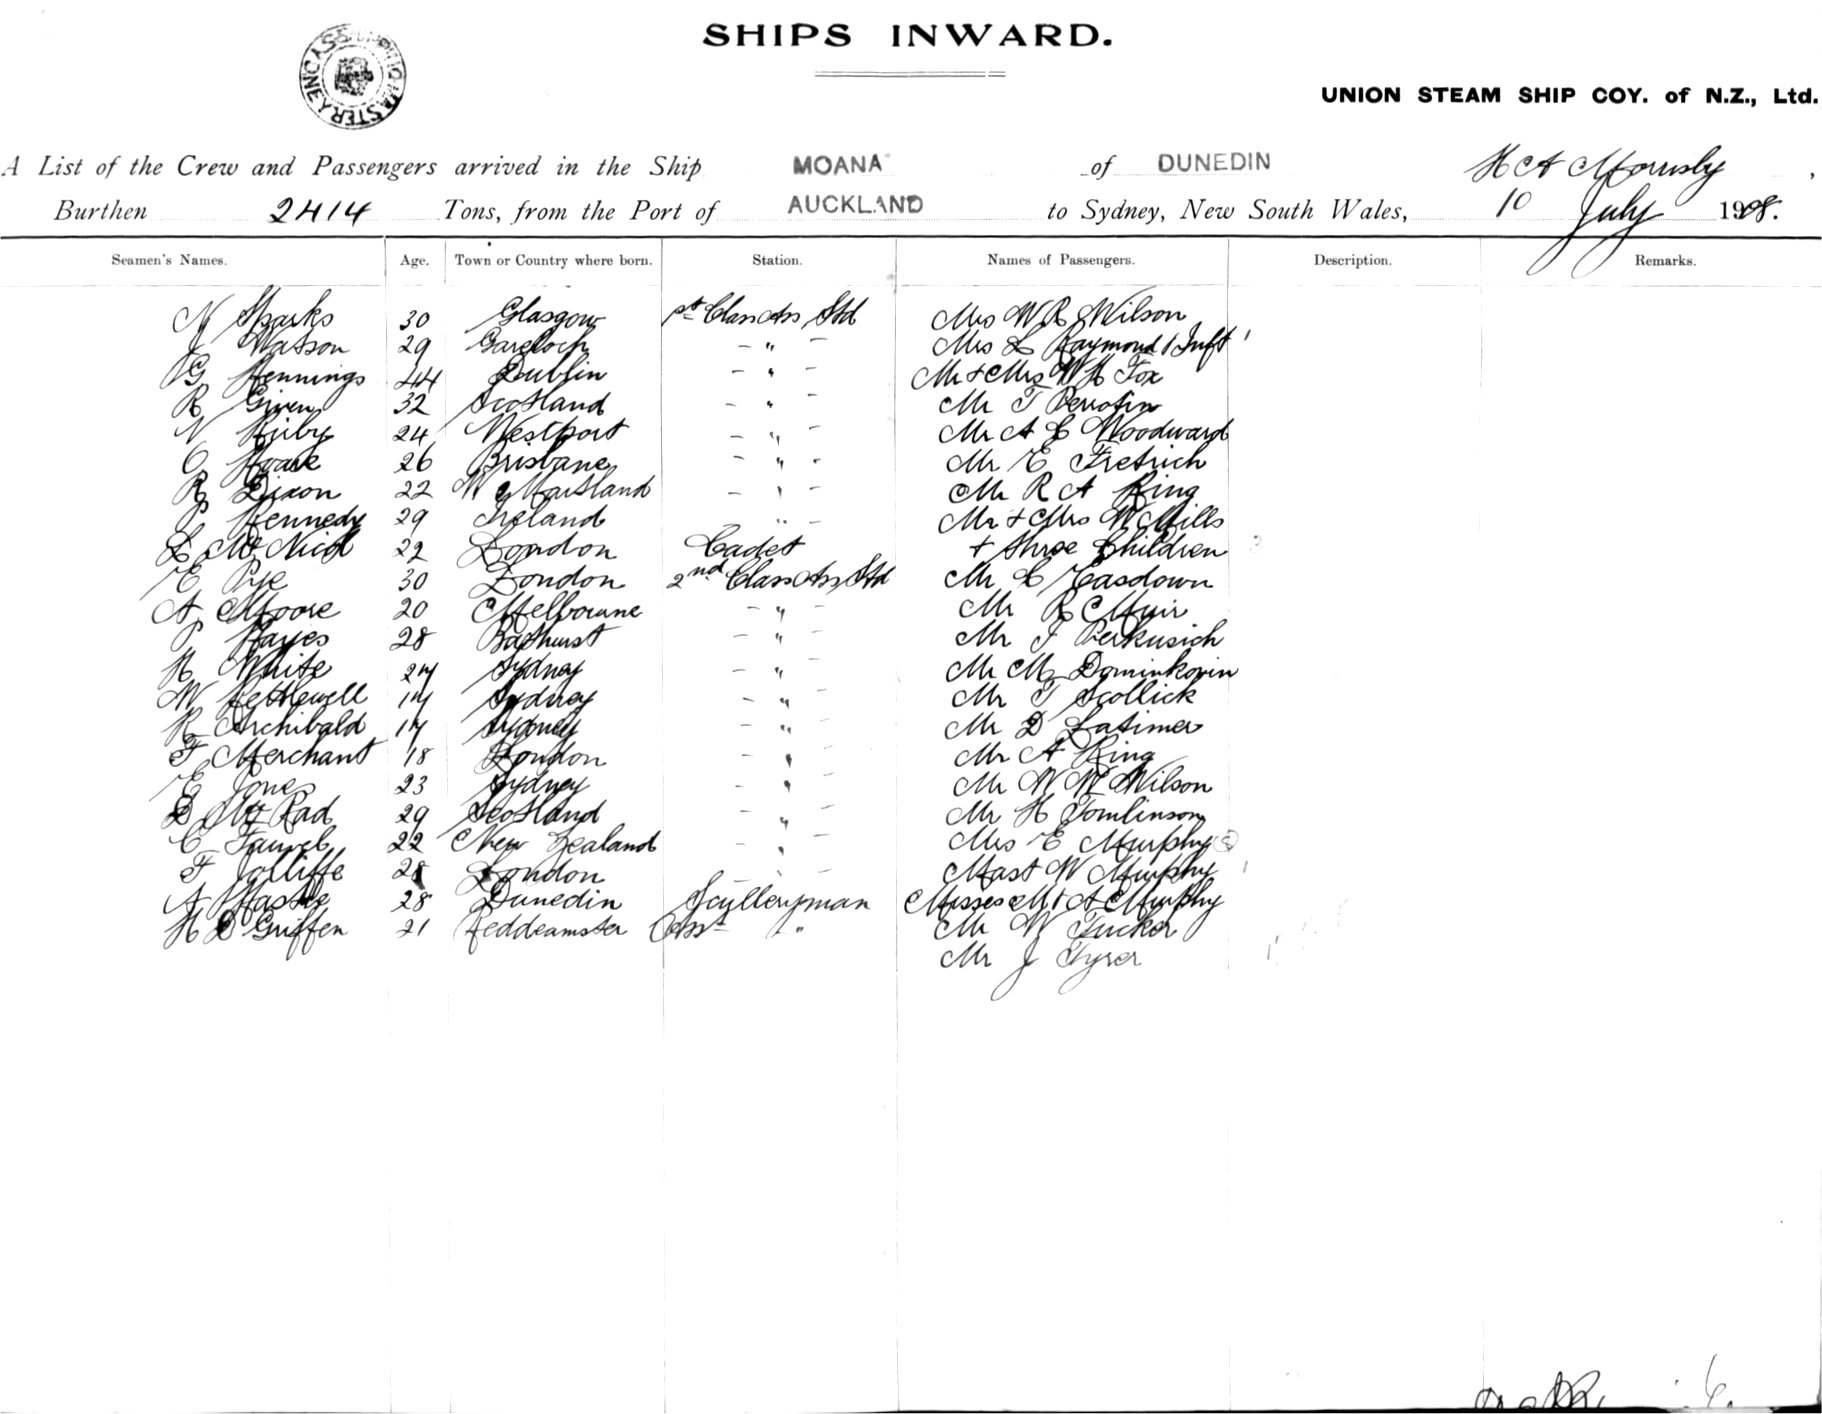 SHIPS INWARD.
UNION STEAM SHIP COY. of N.Z., Ltd.
A List of the Crew and Passengers arrived in the Ship MOANA of DUNEDIN H A
Burthen 2414 Tons, from the Port of AUCKLAND to Sydney, New South Wales, 10 July 1908.
Seamen's Names. Age. Town or Country where born. Station. Names of Passengers. Description. Remarks.
N Sparks 30 Glasgow 1st Class Ass Std Mrs W R Wilson
J Watson 29 Gareloch - " - Mrs L Raymond 1 Inft 1
G Hennings 44 Dublin - " - Mr + Mrs W H Fox
R Given 32 Scotland - " - Mr T
N Kirby 24 Westport - " - Mr A E Woodward
C Hoare 26 Brisbane - " - Mr E Fretrich
R Dixon 22 W Maitland - " - Mr R A King
P Kennedy 29 Ireland " - Mr + Mrs W Mills
L McNicol 22 London Cadet + three Children 3
E Pye 30 London 2nd Class Ass Std Mr L Easdown
A Moore 20 Melbourne - " - Mr R Muir
P Hayes 28 Bathurst - " - Mr J Perkusich
H White 24 Sydney - " - Mr M Dominkovin
W Kettlewell 17 Sydney - " - Mr T Scollick
R Archibald 17 Sydney - " - Mr D Latimer
F Merchant 18 London - " - Mr A King
E Jones 23 Sydney - " - Mr W W Wilson
D McRad 29 Scotland - " - Mr H Tomlinson
C 22 New Zealand - " - Mrs E Murphy
F Jolliffe 28 London - " - Mast W Murphy 1
A Hastie 28 Dunedin Scylleryman Misses M + A Murphy
H D Griffen 21 Keddeamster Asst " Mr W Tucker
Mr J Tyrer